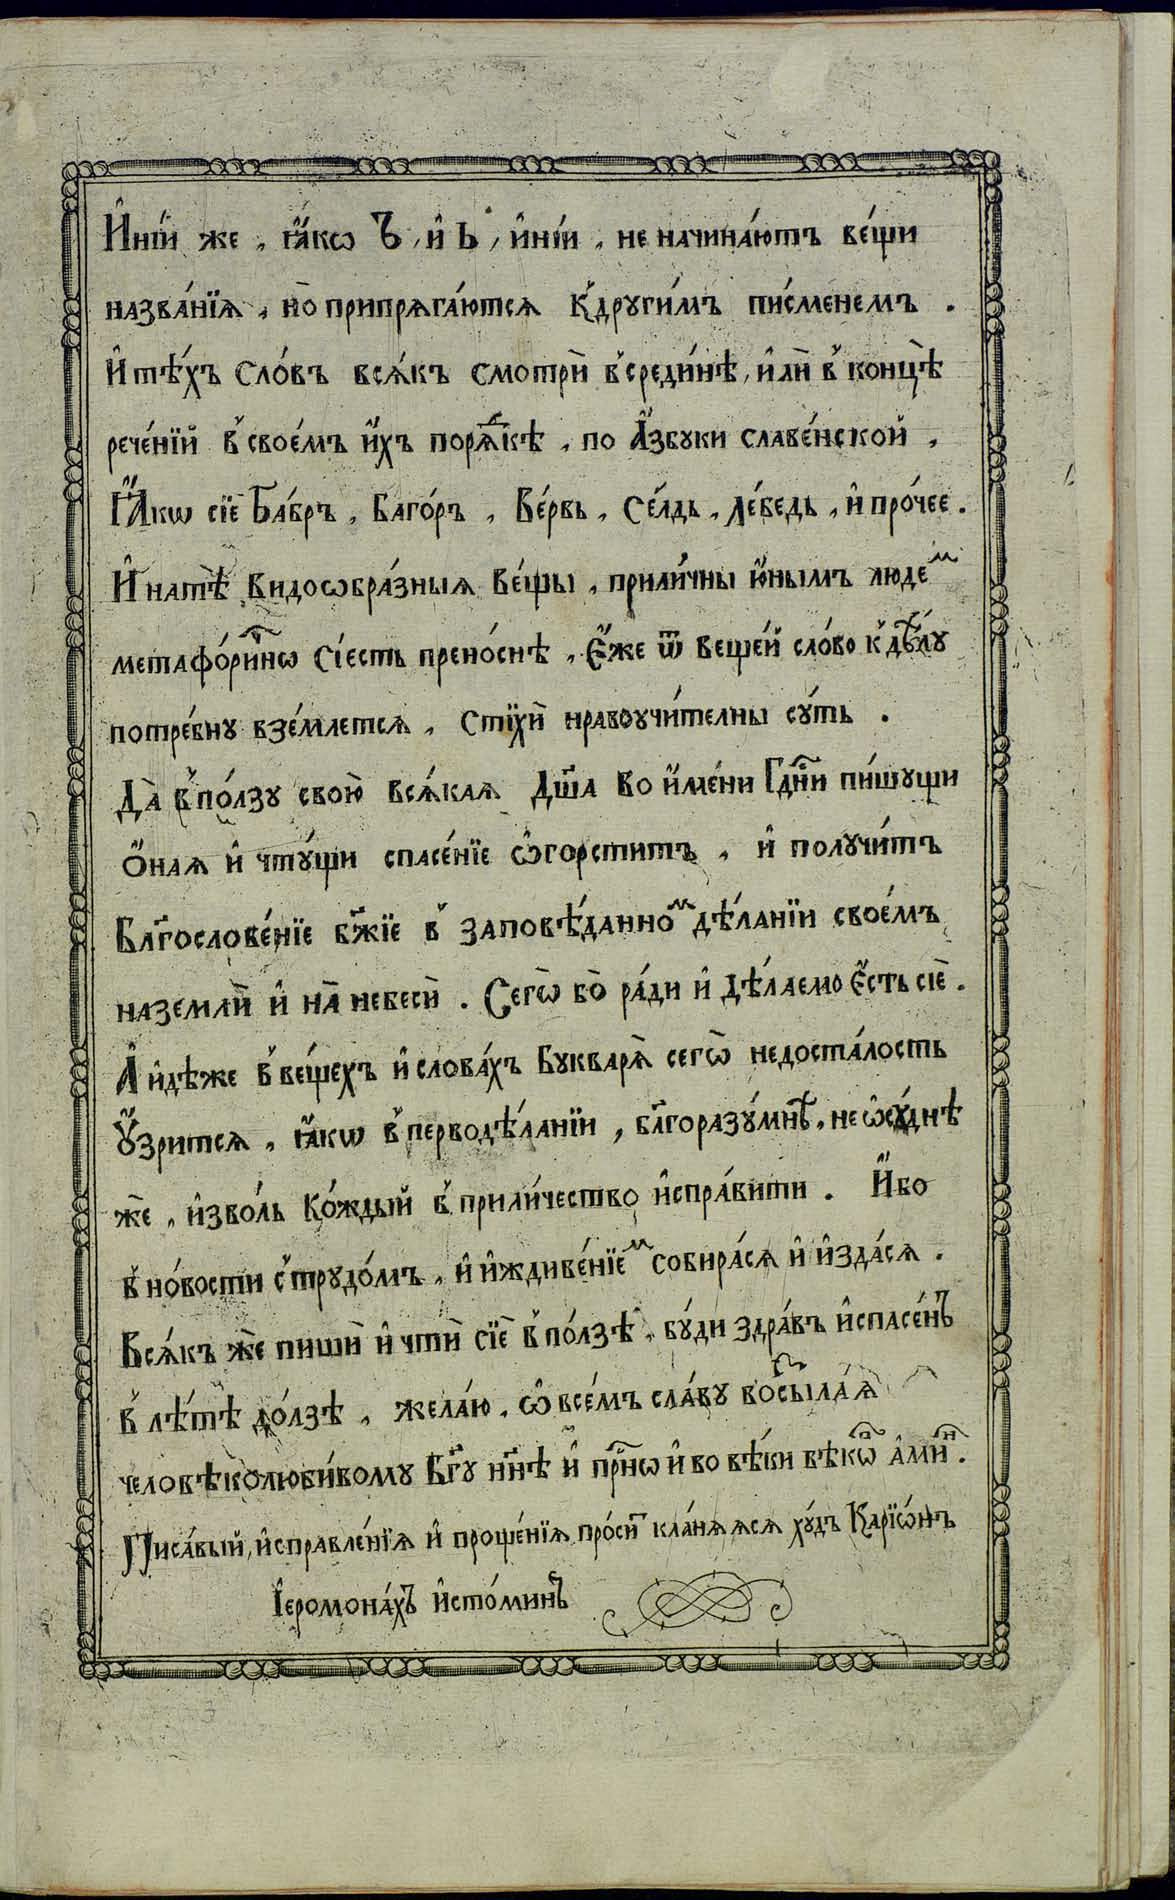 И҆ні́и же , ꙗ҆́кѡ Ъ , и҆ Ь , и҆ні́и , не начина́ютъ ве́щи
назва́нїѧ , но̀ припрѧга́ютсѧ к̾други́мъ пи́сменемъ .
И҆ тѣ́хъ сло́въ всѧ́къ смотрѝ в̾среди́нѣ , и҆лѝ в̾ концѣ̀
рече́нїй в̾ свое́мъ и҆́хъ порѧ́ⷣкѣ , по А҆́збуки славе́нской ,
Ꙗ҆́кѡ сїѐ Ба́бръ , Баго́ръ , Ве́рвь , Се́лдь , Ле́бедь , и҆ про́чее .
И҆ натѣ̀ видоѡбра́зныѧ ве́щы , прили́чны ю҆́нымъ люде́ⷨ
метафо́риⷱ҇нѡ сі́есть прено́снѣ , Є҆́же ѿ веще́й сло́во к̾дѣ́лу
потре́бну взе́млетсѧ , стїхѝ нравоучи́телны су́ть .
Да̀ в̾по́лзу свою̀ всѧ́каѧ Дш҃а во и҆́мени Гдⷭ҇ни пи́шущи
о҆́наѧ и҆ чту́щи спасе́нїе ѡ҆горститъ , и҆ получи́тъ
Бл҃гослове́нїе бж҃їе в̾ заповѣ́данноⷨ дѣ́ланїи свое́мъ
наземлѝ и҆ на̀ небесѝ . Сегѡ̀ бо̀ ра́ди и҆ дѣ́лаемо є҆́сть сїѐ .
А҆ и҆дѣже в̾ ве́щехъ и҆ слова́хъ Букварѧ̀ сегѡ̀ недоста́лость
Ꙋ҆́зритсѧ , ꙗ҆́кѡ в̾ перводѣ́ланїи , бл҃горазу́мнѣ , не ѡ҆су́днѣ
жѐ , и҆зво́ль ко́ждый в̾ прили́чество и҆спра́вити . И҆́бо
в̾ но́вости с̾трудо́мъ , и҆ и҆ждиве́нїеⷨ собира́сѧ и҆ и҆зда́сѧ .
Всѧ́къ жѐ пишѝ и҆ чтѝ сїѐ в̾ по́лзѣ , бу́ди здра́въ и҆ спасе́нъ
в̾ лѣ́тѣ до́лзѣ , жела́ю , ѡ҆ все́мъ сла́ву восыла́ѧ
человѣколюби́вому Бг҃у нн҃ѣ и҆ прⷭ҇нѡ и҆ во вѣ́ки вѣкѡ́ⷡ а҆ми́ⷩ .
Писа́вый , и҆справле́нїѧ и҆ проще́нїѧ про́сиⷮ кла́нѧѧсѧ ху́дъ Карїѡ́нъ
І҆еромона́хъ И҆сто́минъ